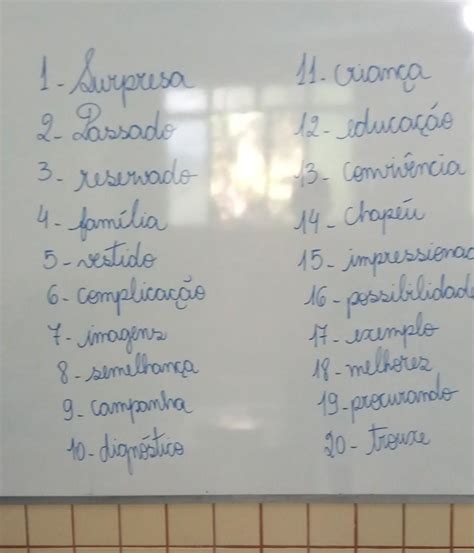 1- Surpresa
2- Passado
3- reservado
4- família
5- vestido
6- complicação
7- imagens
8- semelhança
9- campanha
10- dignóstico
11- criança
12- educação
13- convivência
14- chapéu
15- impressionad
16- possibilidade
17- exemplo
18- melhores
19- procurando
20- trouxe